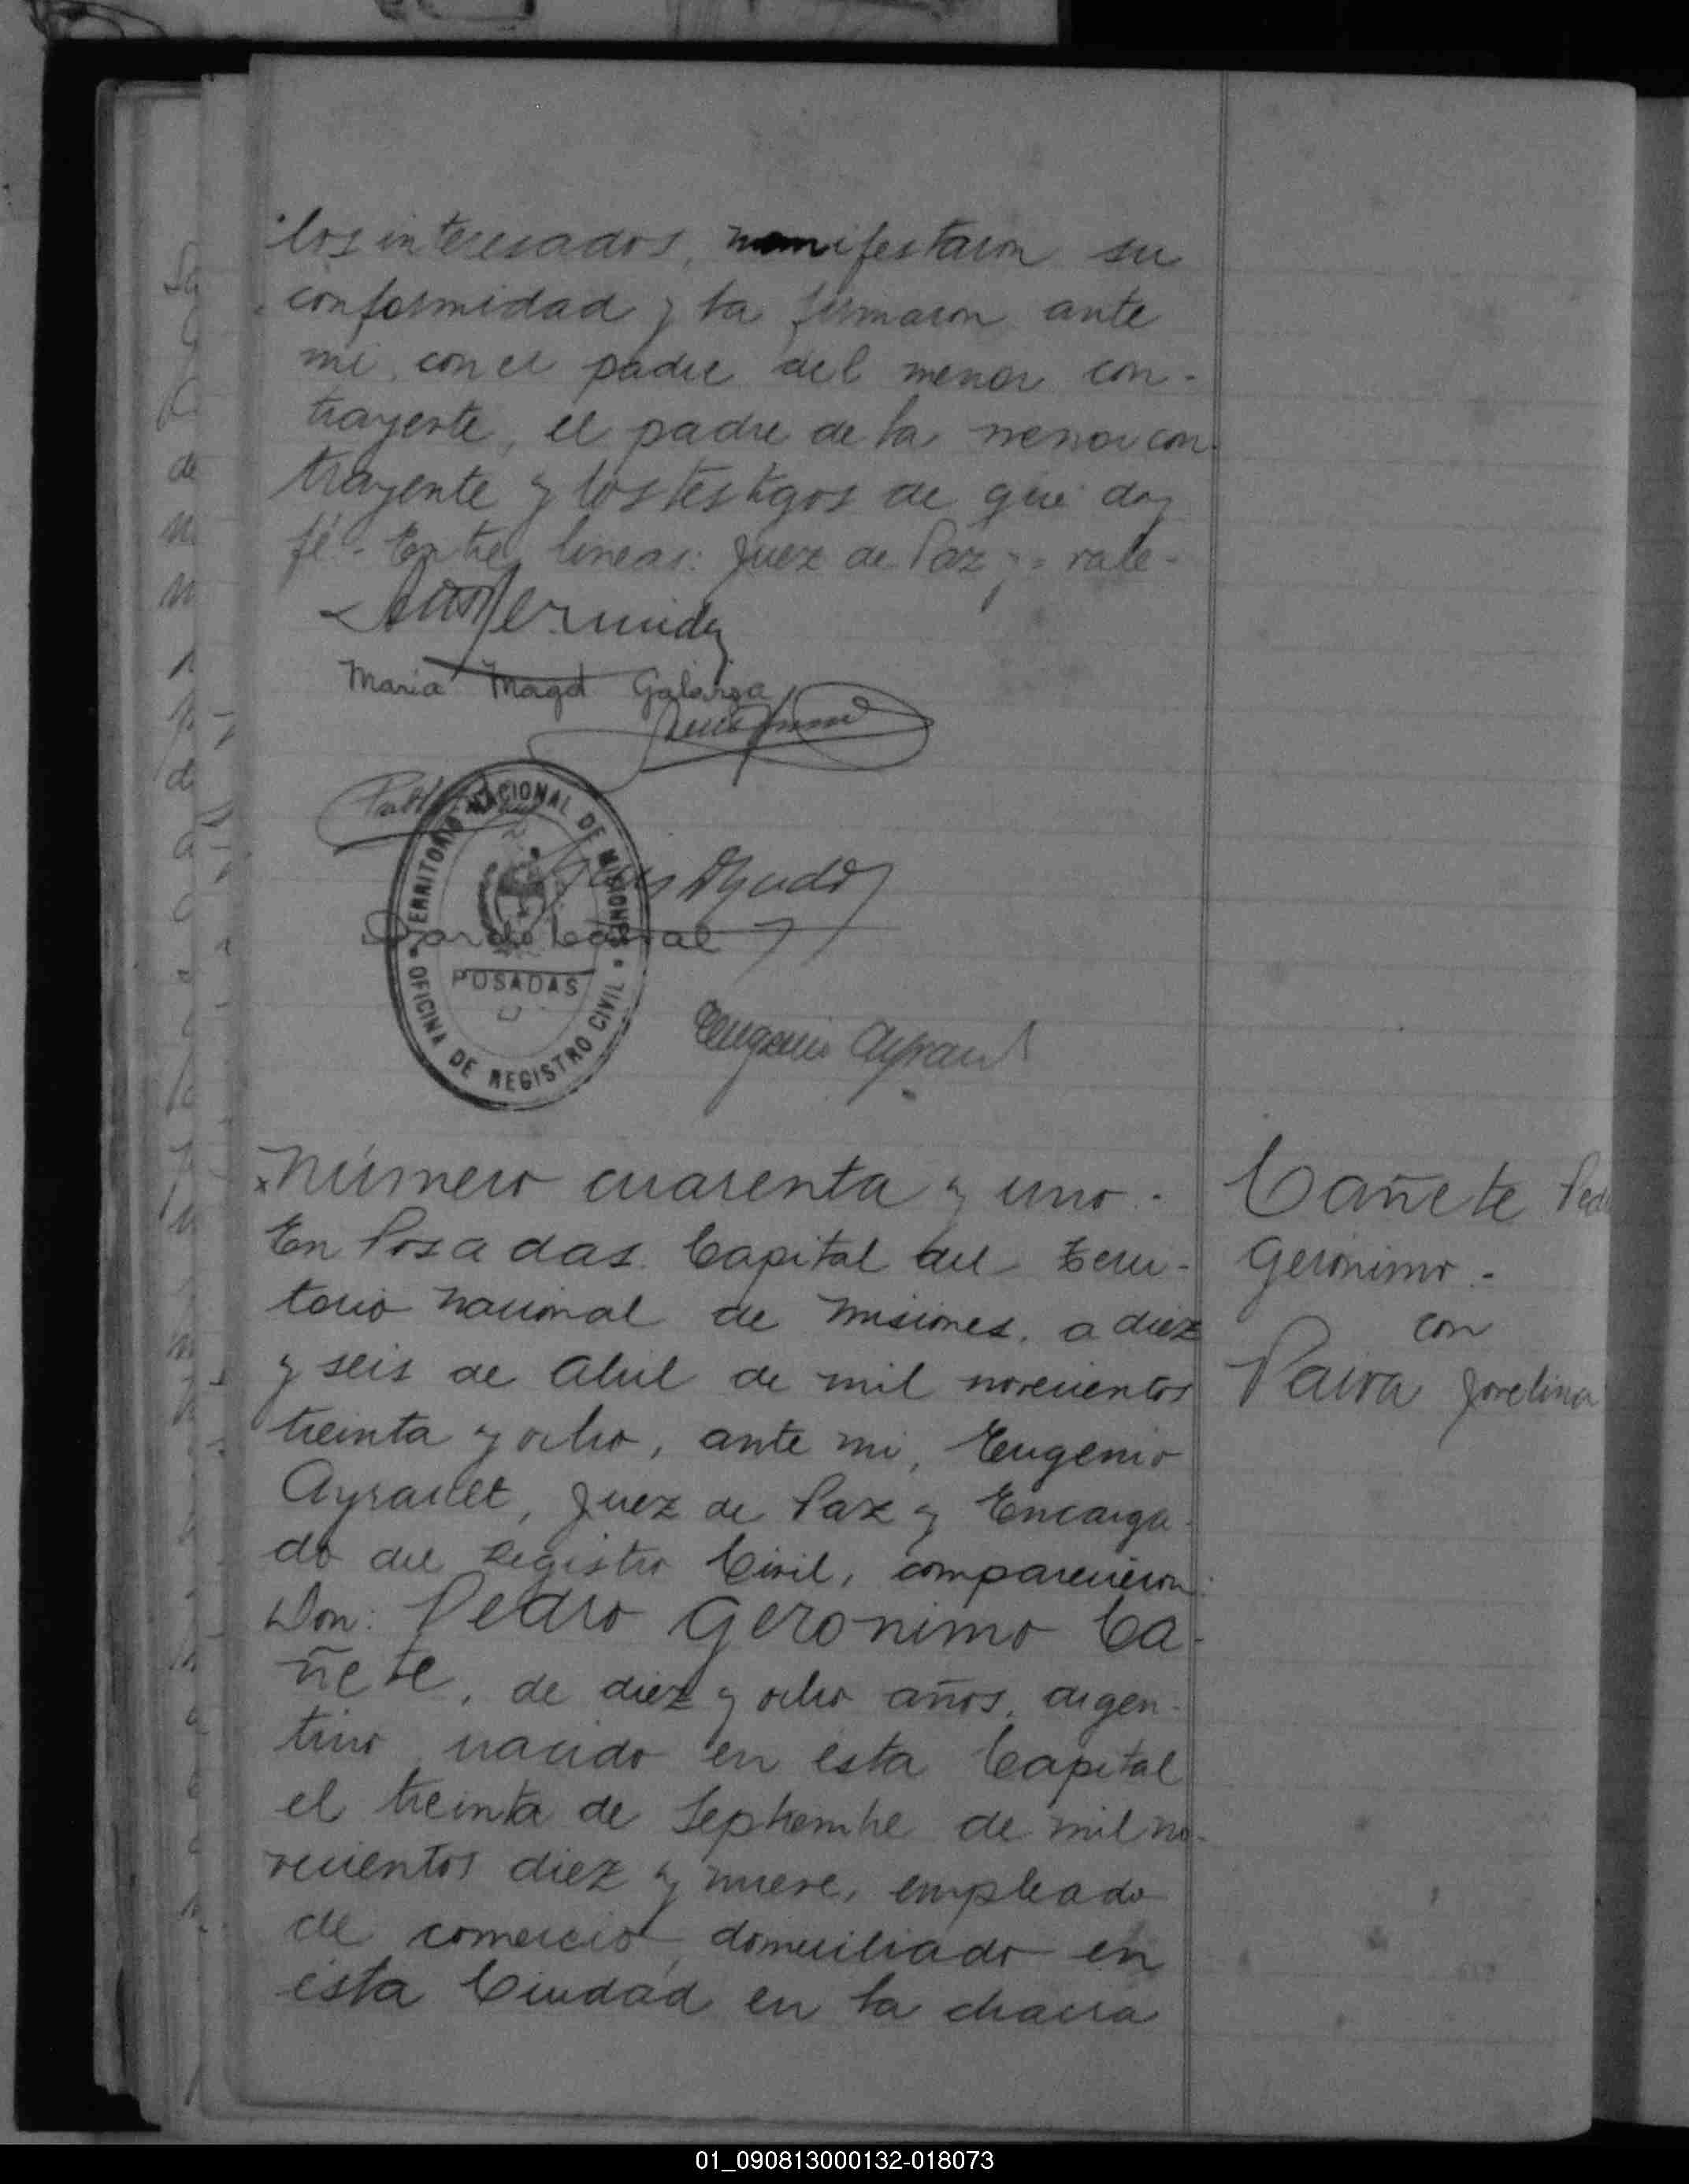 los interesados, manifestaron su
conformidad y la firmaron ante
mi con el padre del menor con-
trayente, el padre de la menor con-
trayente y los testigos de que doy
fé.- Entre lineas: Juez de Paz y = vale-
Maria Magd Galarza
TERRITORIO NACIONAL DE MISIONES
POSADAS
OFICINA DE REGISTRO CIVIL
Eugenio Ayrault
Número cuarenta y uno.-
En Posadas Capital del Terri-
torio nacional de Misiones, a diez
y seis de Abril de mil novecientos
treinta y ocho, ante mi, Eugenio
Ayrault, Juez de Paz y Encarga-
do del Registro Civil, comparecieron:
Don: Pedro Geronimo Ca-
ñete, de diez y ocho años, argen-
tino, nacido en esta Capital
el treinta de Septiembre de mil no-
vecientos diez y nueve, empleado
de comercio, domiciliado en
esta Ciudad en la chacra
Cañete
Geronimo.-
con
Paiva Jovelina
01_090813000132-018073